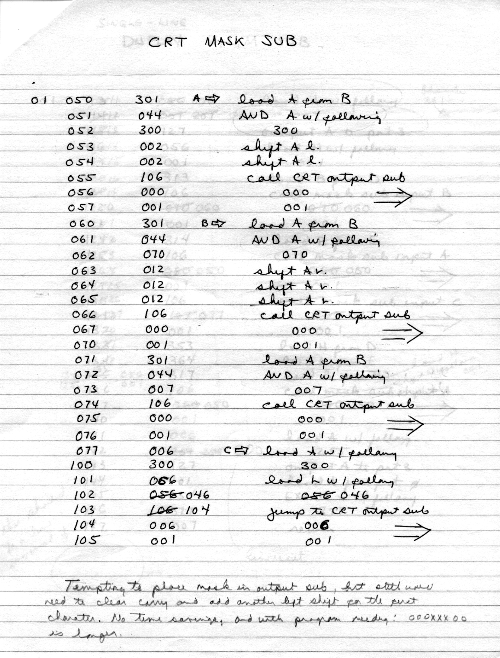 CRT MASK SUB
01 050 301 A⇨ load A from B
051 044 AND A w/ following
052 300 300
053 002 shift A l.
054 002 shift A l.
055 106 call CRT output sub
056 000 000
057 001 001
060 301 B⇨ load A from B
061 044 AND A w/ following
062 070 070
063 012 shift A r.
064 012 shift A r.
065 012 shift A r.
066 106 call CRT output sub
067 000 000
070 001 001
071 301 load A from B
072 044 AND A w/ following
073 007 007
074 106 call CRT output sub
075 000 000
076 001 001
077 006 C⇨ load A w/ following
100 300 300
101 066 load L w/ following
102 056 046 056 046
103 106 104 jump to CRT output sub
104 006 006
105 001 001
Tempting to place mask in output sub, but still
need to clear carry and add another left shift for the first
character. No time savings, and with program needing: 000XXX00
is longer.